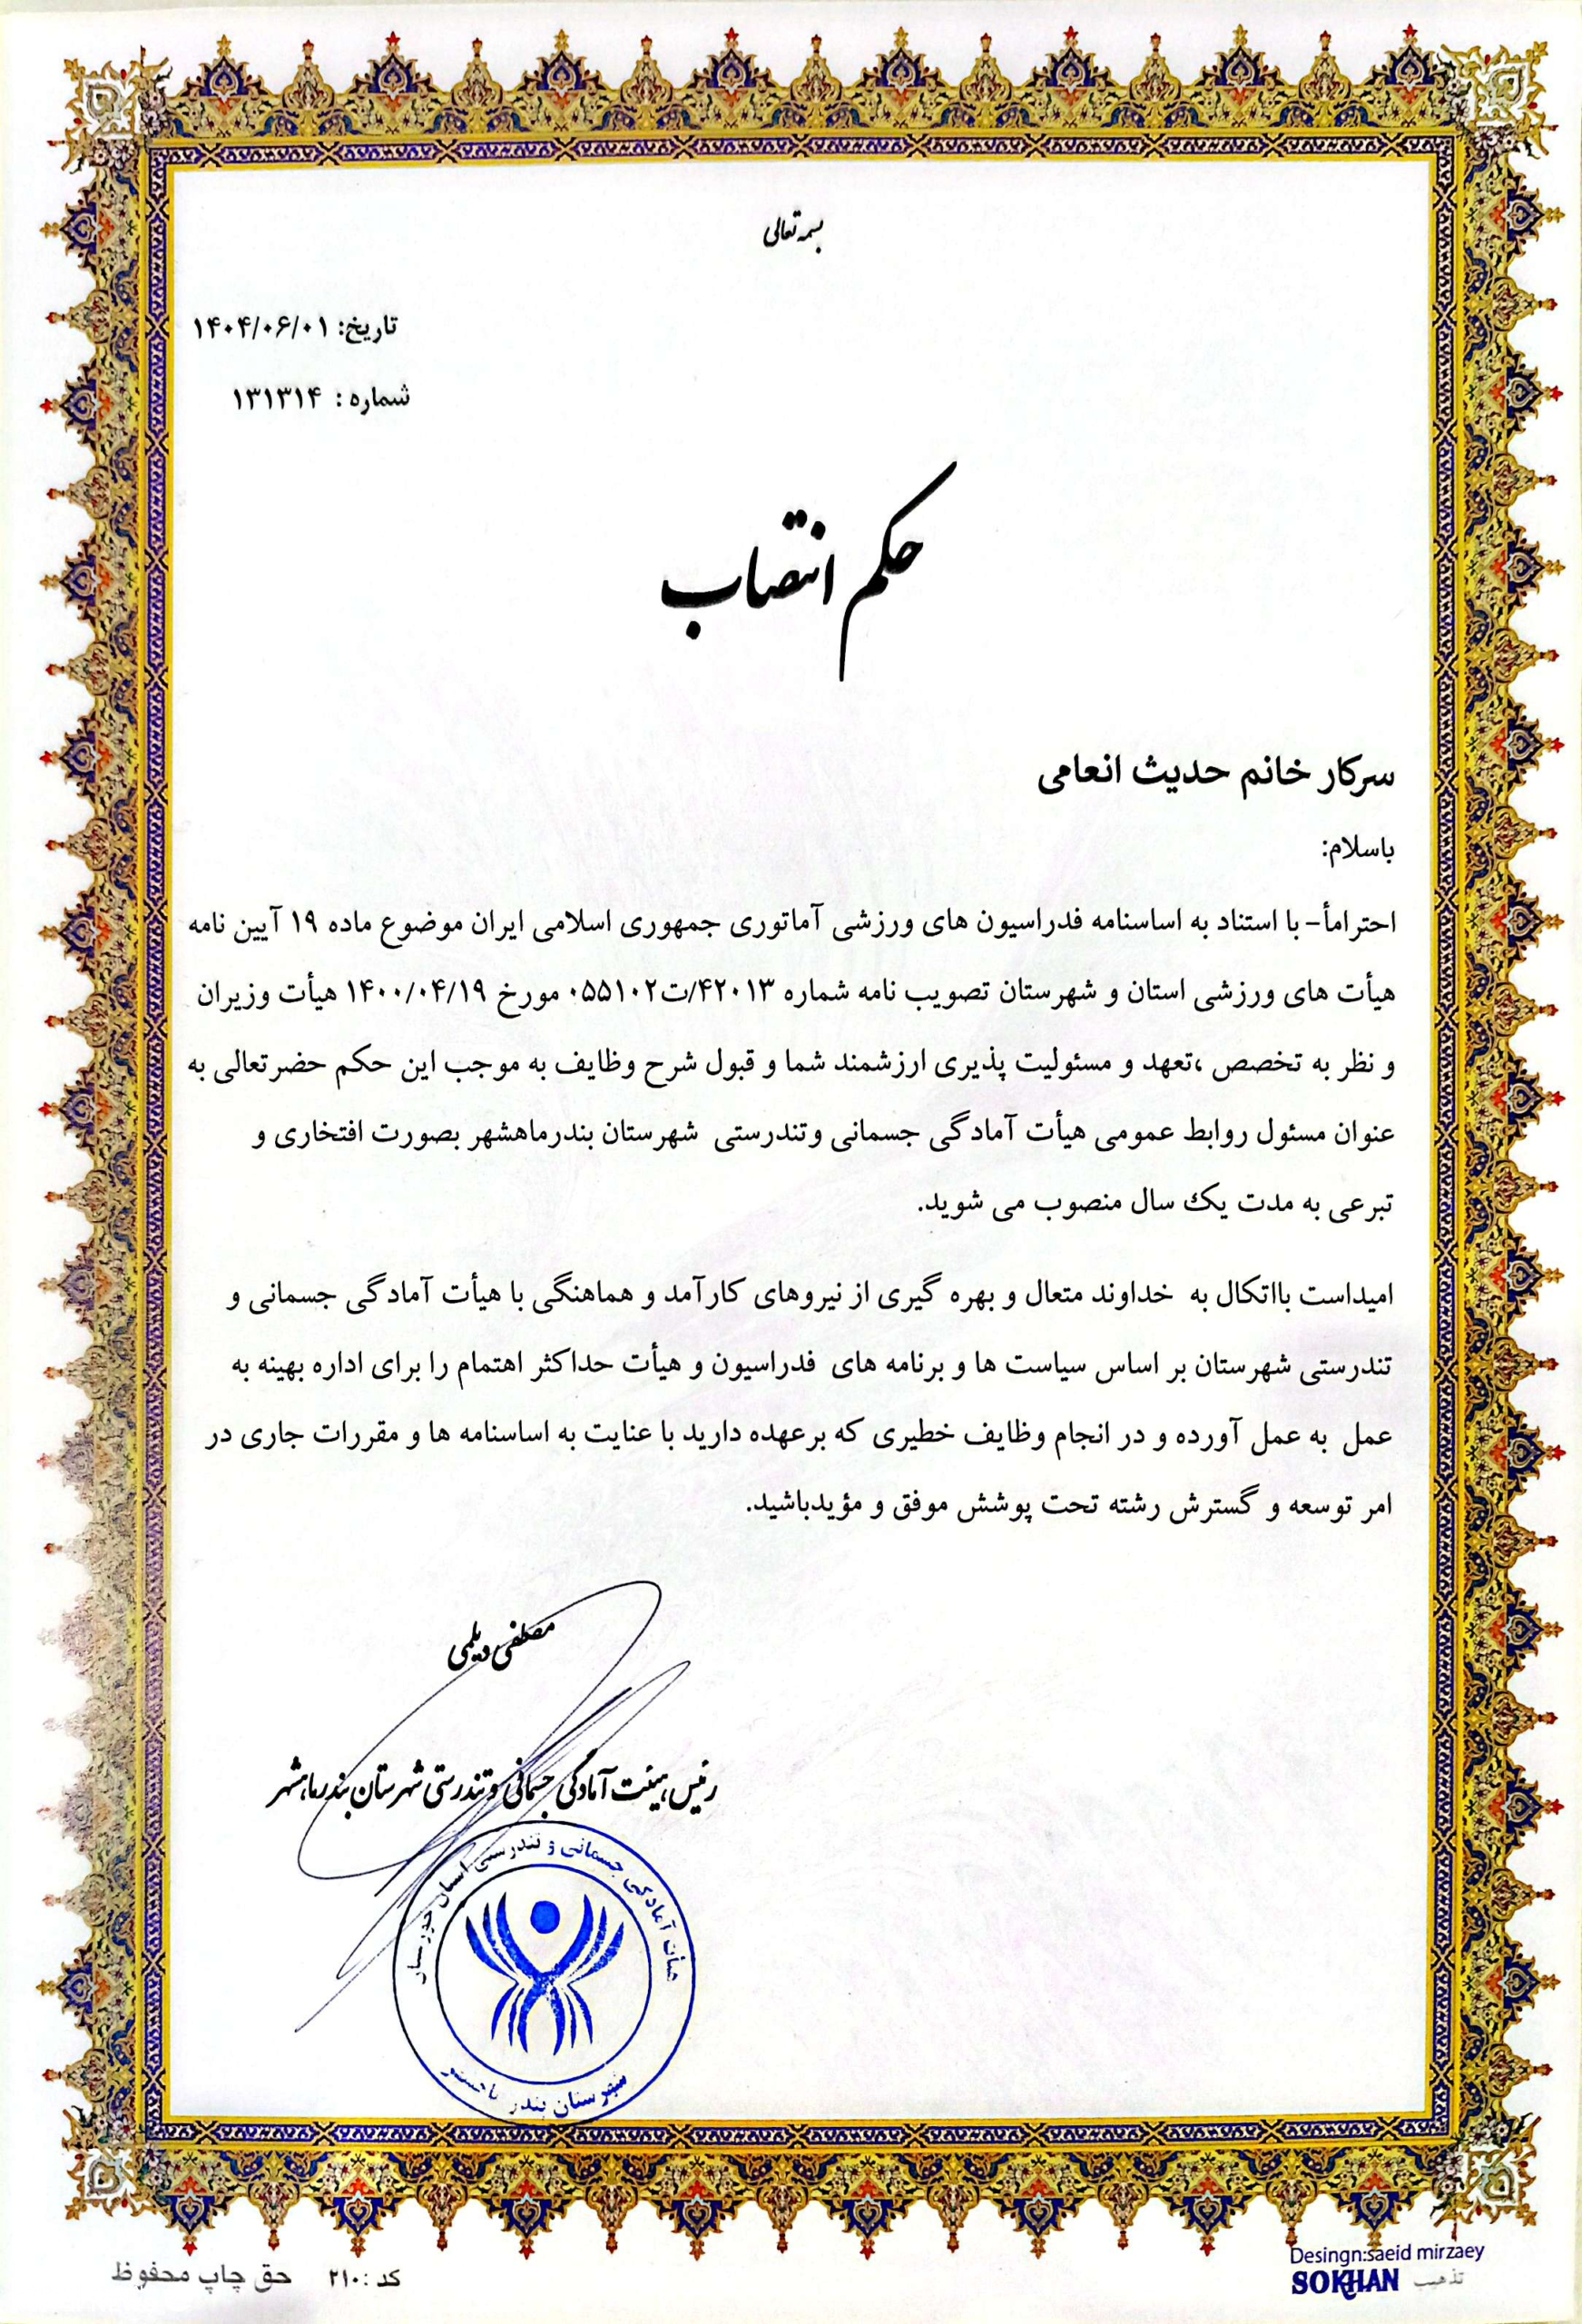 بسمه تعالی
تاریخ: ۱۴۰۴/۰۶/۰۱
شماره : ۱۳۱۳۱۴
حکم انتصاب
سرکار خانم حدیث انعامی
باسلام:
احتراماً- با استناد به اساسنامه فدراسیون های ورزشی آماتوری جمهوری اسلامی ایران موضوع ماده ۱۹ آیین نامه
هیأت های ورزشی استان و شهرستان تصویب نامه شماره ۴۲۰۱۳/ت۰۵۵۱۰۲ مورخ ۱۴۰۰/۰۴/۱۹ هیأت وزیران
و نظر به تخصص ،تعهد و مسئولیت پذیری ارزشمند شما و قبول شرح وظایف به موجب این حکم حضرتعالی به
عنوان مسئول روابط عمومی هیأت آمادگی جسمانی وتندرستی شهرستان بندرماهشهر بصورت افتخاری و
تبرعی به مدت یک سال منصوب می شوید.
امیداست بااتکال به خداوند متعال و بهره گیری از نیروهای کارآمد و هماهنگی با هیأت آمادگی جسمانی و
تندرستی شهرستان بر اساس سیاست ها و برنامه های فدراسیون و هیأت حداکثر اهتمام را برای اداره بهینه به
عمل به عمل آورده و در انجام وظایف خطیری که برعهده دارید با عنایت به اساسنامه ها و مقررات جاری در
امر توسعه و گسترش رشته تحت پوشش موفق و مؤیدباشید.
مصطفی دیلمی
رئیس هیئت آمادگی جسمانی و تندرستی شهرستان بندرماهشهر
هیأت آمادگی جسمانی و تندرستی استان خوزستان
شهرستان بندر ماهشهر
Desingn:saeid mirzaey
SOKHAN تذهیب
کد :۲۱۰ حق چاپ محفوظ